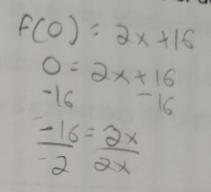 f(0) = 2x+16
0 = 2x+16
-16 -16
-16 = 2x
-2 2x